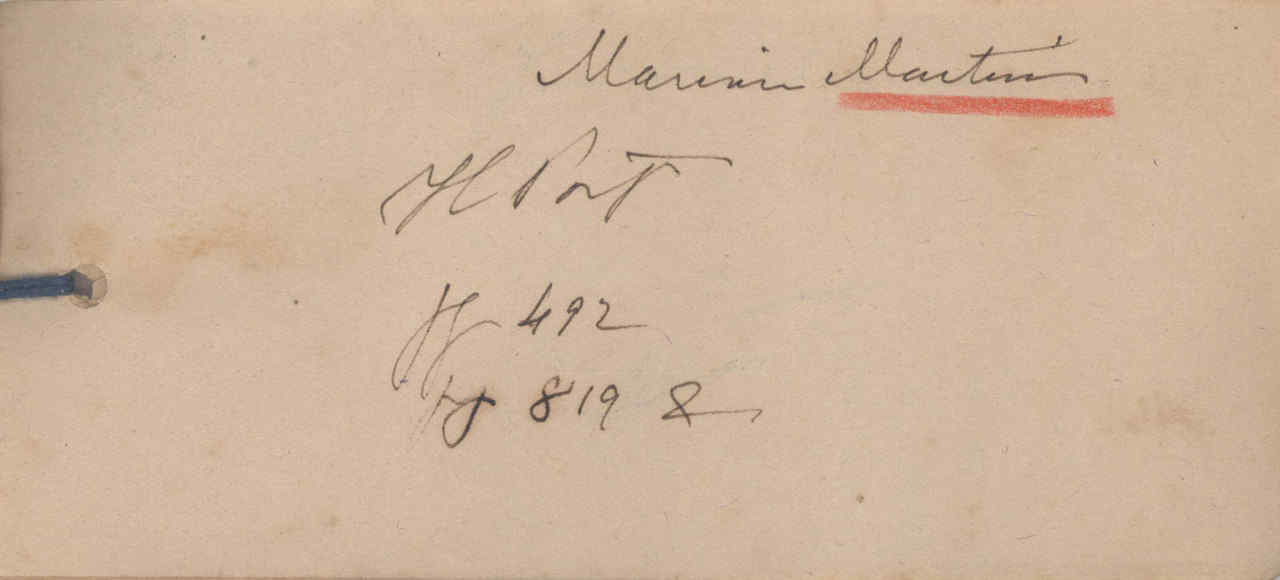 Marian Martin
H Port
Hf 492
Hf 819 &